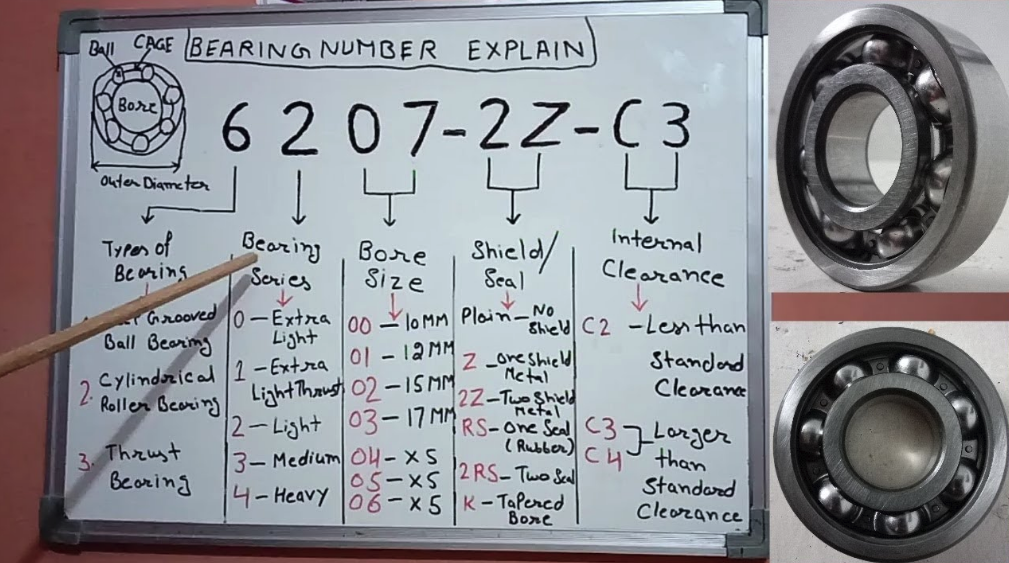 Ball CAGE
BEARING NUMBER EXPLAIN
Bore
Outer Diameter
6207-2Z-C3
Types of
Bearing
Grooved
Ball Bearing
2. Cylindrical
Roller Bearing
3. Thrust
Bearing
Bearing
Series
0 - Extra
Light
1 - Extra
Light Thrust
2 - Light
3 - Medium
4 - Heavy
Bore
Size
00 - 10 MM
01 - 12 MM
02 - 15 MM
03 - 17 MM
04 - x5
05 - x5
06 - x5
Shield/
Seal
Plain - No
Shield
Z - one shield
Metal
2Z - Two Shield
Metal
RS - One Seal
(Rubber)
2RS - Two Seal
K - Tapered
Bore
Internal
Clearance
C2 - Less than
Standard
Clearance
C3 Larger
C4 than
Standard
Clearance